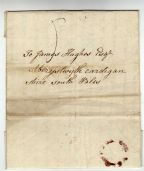 To James Hughes Esqr
Aberystwyth cardigan
shire south Wales